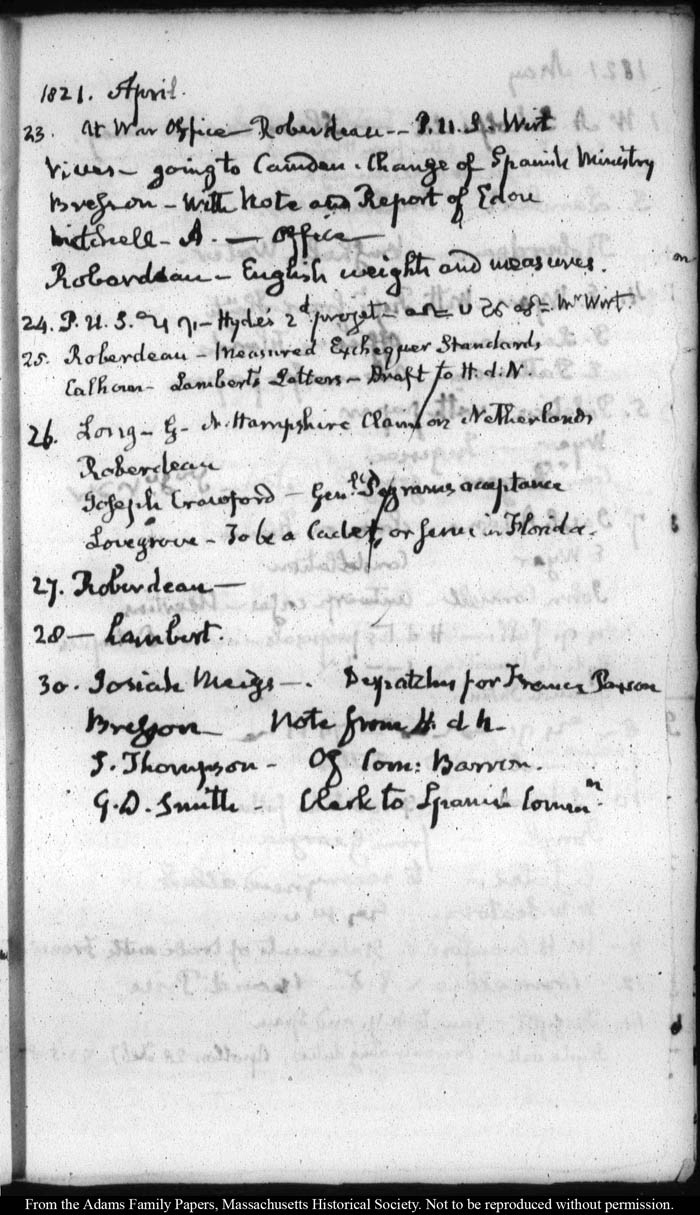 1821. April.
23. At War Office – Roberdeau – P.U.S. Wirt
Vives – going to Camden. Change of Spanish Ministry
Bresson – With Note and Report of Edou
Mitchell – A. — Office —
Roberdeau – English weights and measures.
24. P. U. S. – Hyde's 2d projet – Mr Wirt
25. Roberdeau – Measured Exchequer Standards
Calhoun – Lambert's Letters – Draft to H. d. N.
26. Long – G – N. Hampshire Claim on Netherlands
Roberdeau
Joseph Crawford – Genl. Pegrams acceptance
Lovegrove – To be a Cadet, or serve in Florida.
27. Roberdeau —
28 — Lambert.
30. Josiah Meigs —. Despatches for France
Bresson — Note from H. d. N.
S. Thompson – Of Com: Barron.
G. D. Smith – Clerk to Spanish Commn.
From the Adams Family Papers, Massachusetts Historical Society. Not to be reproduced without permission.